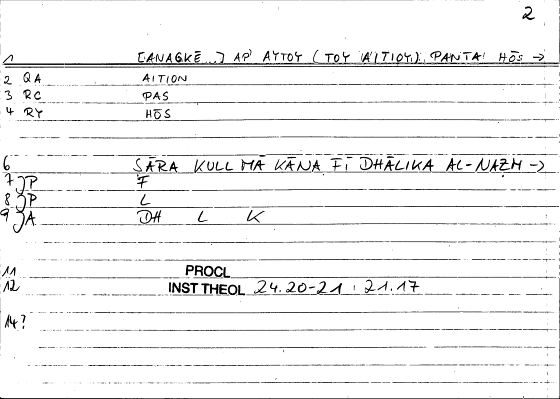 2
1 [ANAGKĒ...] AP' AYTOY (TOY AITIOY) PANTA HŌS →
2 QA AITION
3 RC PAS
4 RY HŌS
6 ṢĀRA KULL MĀ KĀNA FĪ DHĀLIKA AL-NAẒM →
7 JP F
8 JP L
9 JA DH L K
11 PROCL
12 INST THEOL 24.20-21 : 21.17
14?